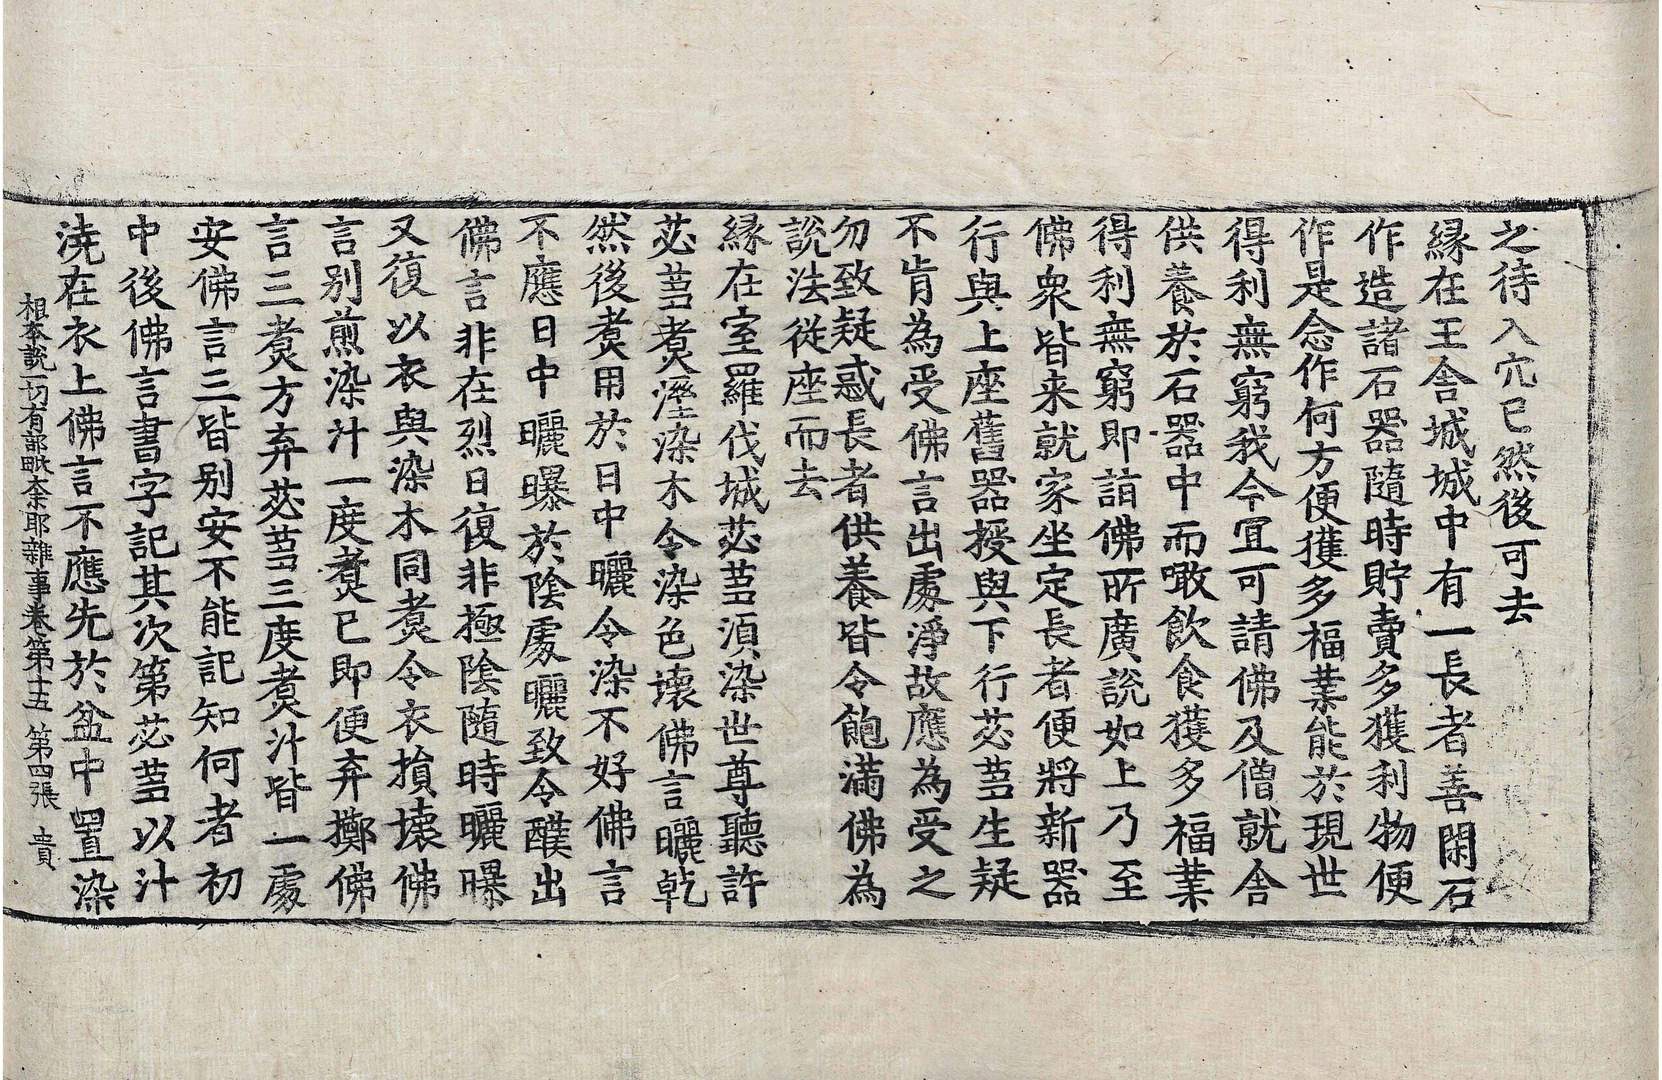 之待入穴已然後可去
縁在王舍城城中有一長者善閑石
作造諸石器隨時貯賣多獲利物便
作是念作何方便獲多福業能於現世
得利無窮我今宜可請佛及僧就舍
供養於石器中而噉飲食獲多福業
得利無窮即詣佛所廣說如上乃至
佛衆皆来就家坐定長者便將新器
行與上座舊器授與下行苾芻生疑
不肯為受佛言出處淨故應為受之
勿致疑惑長者供養皆令飽滿佛為
說法從座而去
縁在室羅伐城苾芻須染世尊聽許
苾芻煑溼染木令染色壞佛言曬乾
然後煑用於日中曬令染不好佛言
不應日中曬曝於陰處曬致令醭出
佛言非在烈日復非極陰隨時曬曝
又復以衣與染木同煑令衣損壞佛
言别煎染汁一度煑已即便弃擲佛
言三煑方弃苾芻三度煑汁皆一處
安佛言三皆别安不能記知何者初
中後佛言書字記其次第苾芻以汁
澆在衣上佛言不應先於盆中置染
根本說一切有部毗奈耶雜事卷第十五 第四張 貴